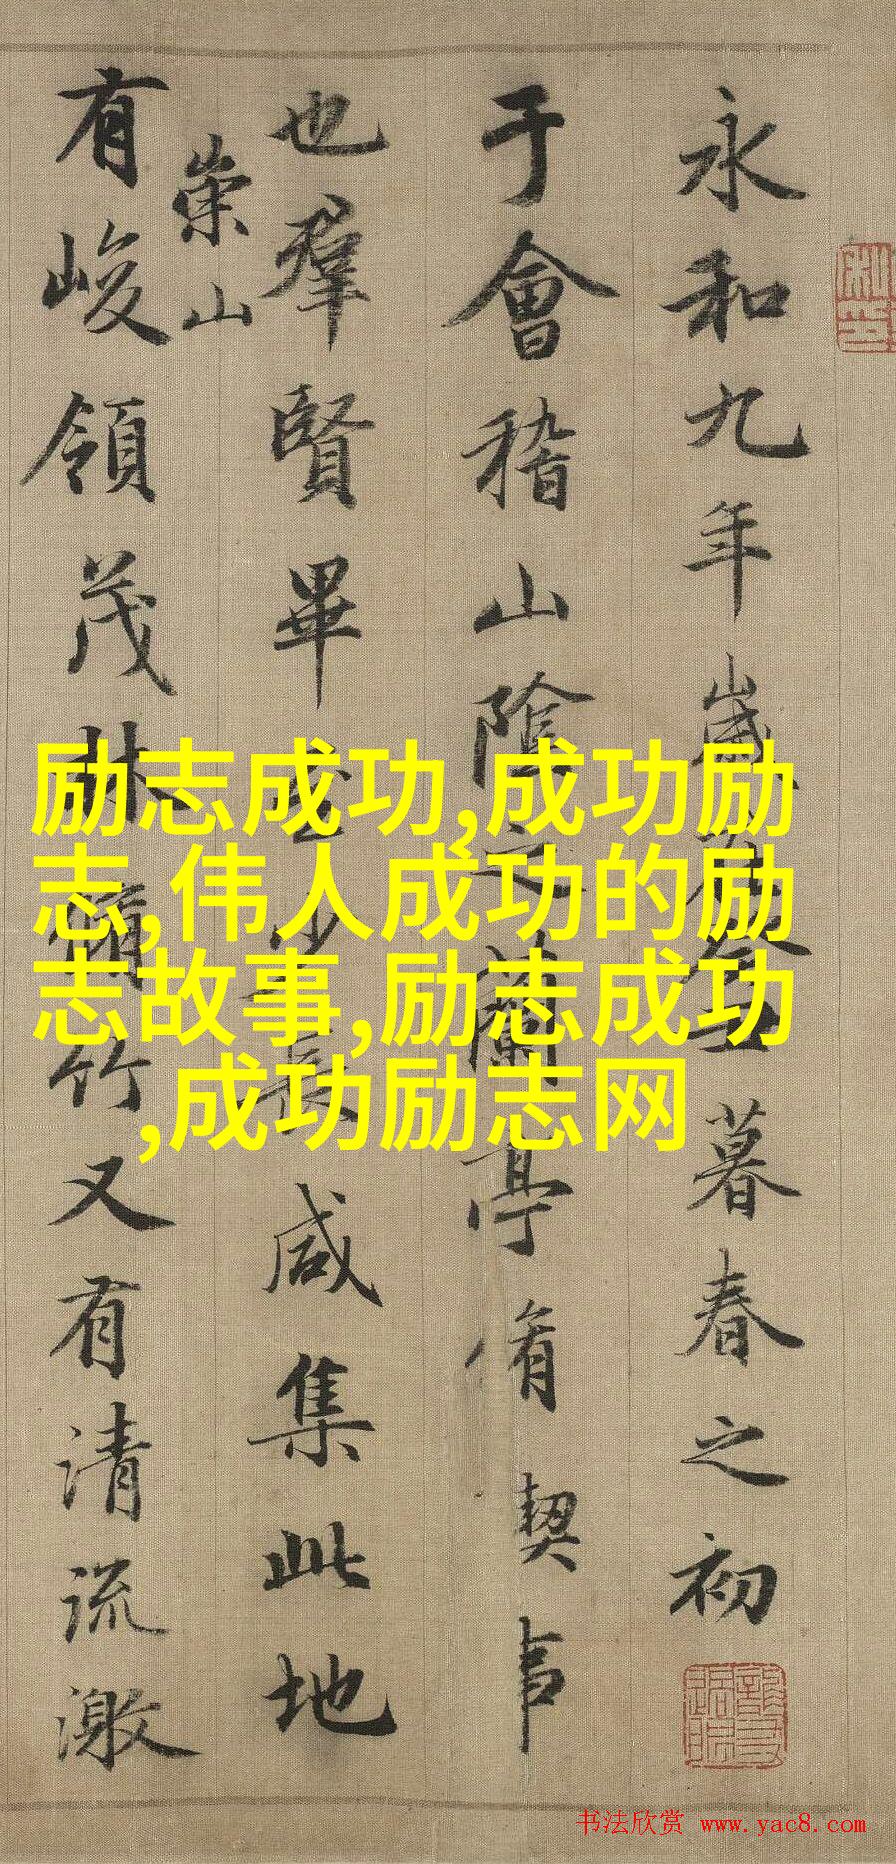 永和九年歲在癸丑暮春之初
于會稽山陰之蘭亭脩禊事
也羣賢畢至少長咸集此地
崇山
有峻領茂林脩竹又有清流激
励志成功,成功励
志,伟人成功的励
志故事,励志成功
,成功励志网
书法欣赏 www.yac8.com